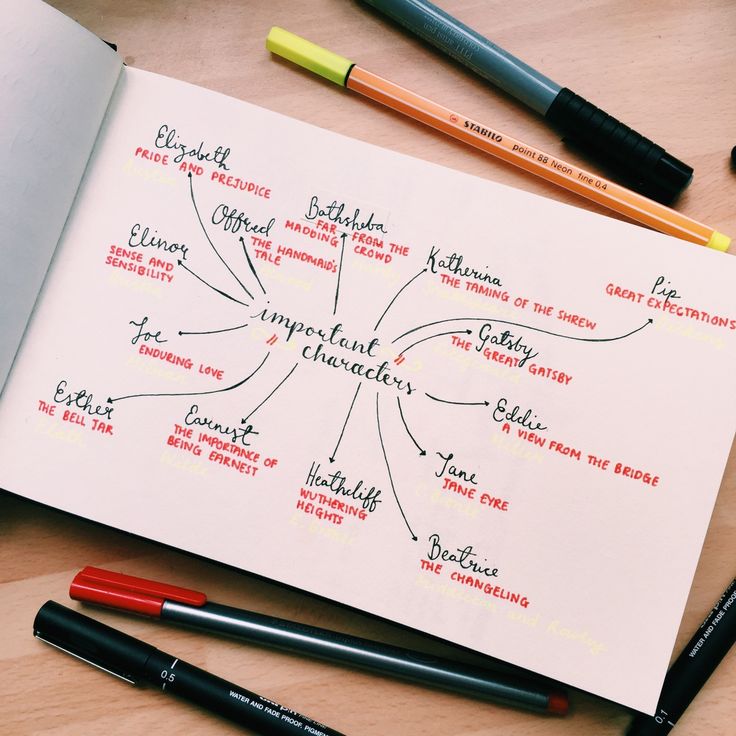 Elizabeth
PRIDE AND PREJUDICE
Austen
Offred
THE HANDMAID'S
TALE
Atwood
Bathsheba
FAR FROM THE
MADDING CROWD
Hardy
Katherina
THE TAMING OF THE SHREW
Shakespeare
Pip
GREAT EXPECTATIONS
Dickens
Elinor
SENSE AND
SENSIBILITY
Austen
Gatsby
THE GREAT GATSBY
important
characters
Joe
ENDURING LOVE
McEwan
Eddie
A VIEW FROM THE BRIDGE
Miller
Esther
THE BELL JAR
Plath
Earnest
THE IMPORTANCE OF
BEING EARNEST
Wilde
Heathcliff
WUTHERING
HEIGHTS
E. Bronte
Jane
JANE EYRE
C. Bronte
Beatrice
THE CHANGELING
Middleton and Rowley
STABILO
point 88 Neon fine 0.4
0.5
WATER AND FADE PROOF, PIGMENT
0.1
WATER AND FADE PROOF